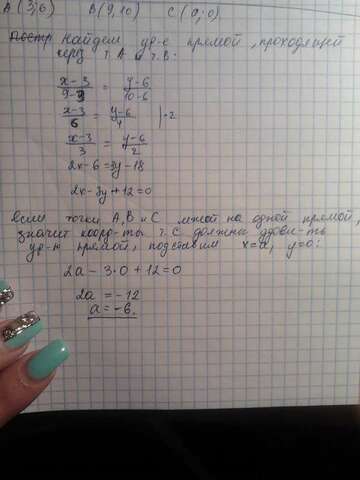 A (3; 6) B (9, 10) C (a; 0)
Найдем ур-е прямой, проходящей
через т. A и т. B:
x-3/9-3 = y-6/10-6
x-3/6 = y-6/4 |·2
x-3/3 = y-6/2
2x-6=3y-18
2x-3y+12=0
Если точки A, B и C лежат на одной прямой,
значит коорд-ты т. C должны удовл-ть
ур-ю прямой, подставим x=a, y=0:
2a - 3·0 + 12 = 0
2a = -12
a = -6.